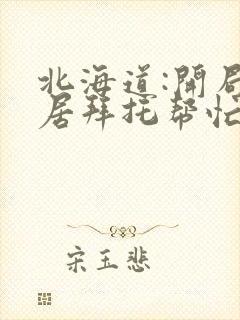 北海道:開局
居拜托帮忙
宋玉悲